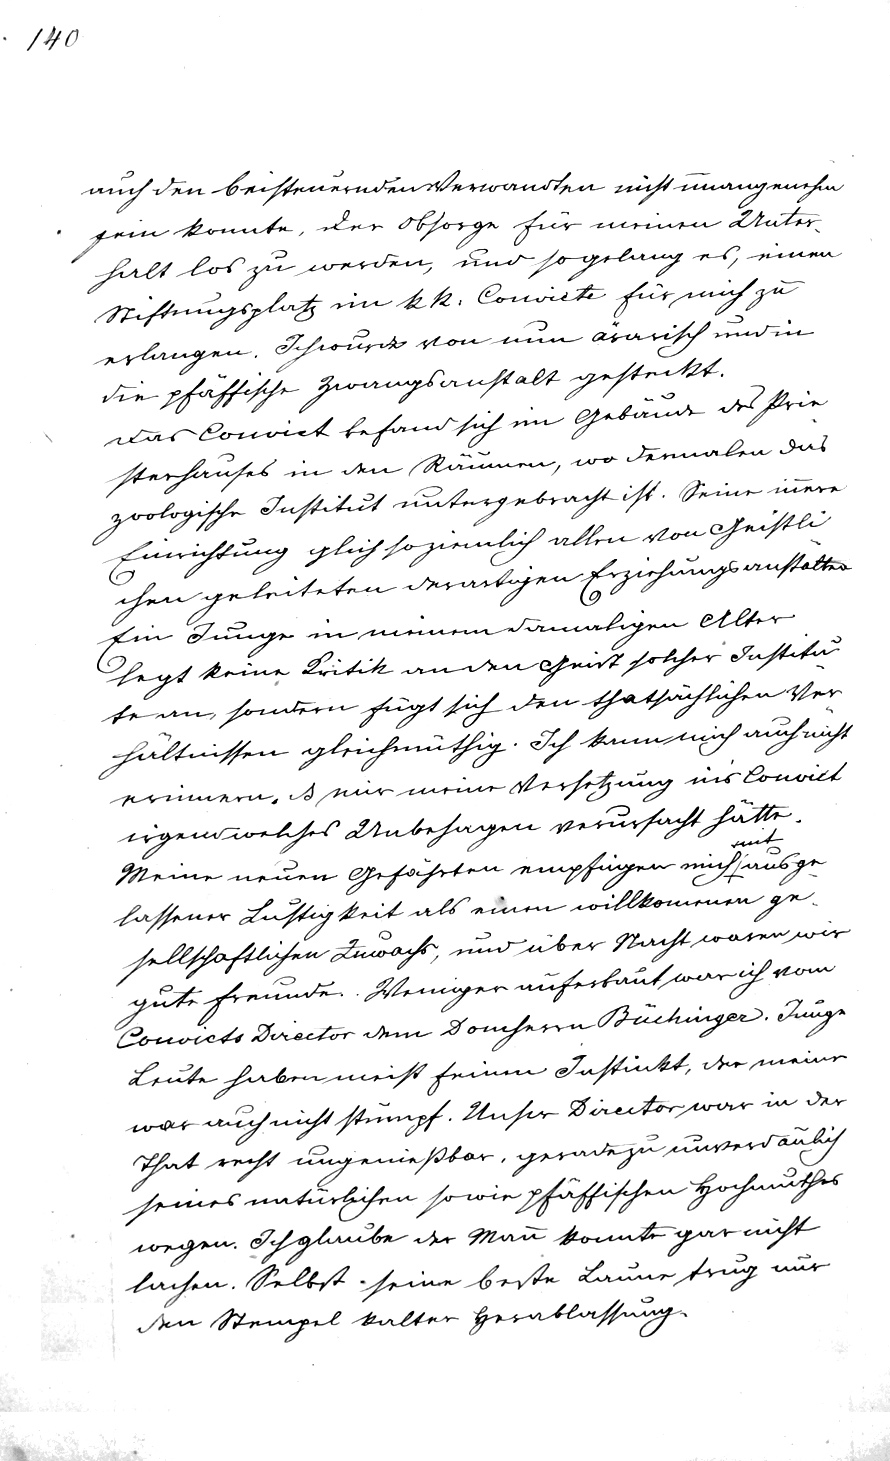 140
auch den beisteuernden Verwandten nicht unangenehm
sein konnte, der Obsorge für meinen Unter-
halt los zu werden, und so gelang es, einen
Stiftungsplatz im k k. Convicte für mich zu
erlangen. Ich wurde von nun ärarisch und in
die pfäffische Zwangsanstalt gesteckt.
Das Convict befand sich im Gebäude des Prie
sterhauses in den Räumen, wo dermalen das
zoologische Institut untergebracht ist. Seine innere
Einrichtung glich so ziemlich allen von Geistli
chen geleiteten derartigen Erziehungsanstalten
Ein Junge in meinem damaligen Alter
legt keine Kritik an den Geist solcher Institu
te an, sondern fügt sich den thatsächlichen Ver
hältnissen gleichmüthig. Ich kann mich auch nicht
erinnern, ds mir meine Versetzung in's Convict
irgend welches Unbehagen verursacht hätte.
Meine neuen Gefährten empfingen mich mit ausge
lassener Lustigkeit als einen willkomenen ge-
sellschaftlichen Zuwachs, und über Nacht waren wir
gute Freunde. Weniger auferbaut war ich vom
Convicts Director dem Domherrn Büchinger. Junge
Leute haben meist feinen Instinkt, der meine
war auch nicht stumpf. Unser Director war in der
That recht ungenießbar, geradezu unverdaulich
seines natürlichen sowie pfäffischen Hochmuthes
wegen. Ich glaube der Mañ konnte gar nicht
lachen. Selbst seine beste Laune trug nur
den Stempel kalter Herablassung.